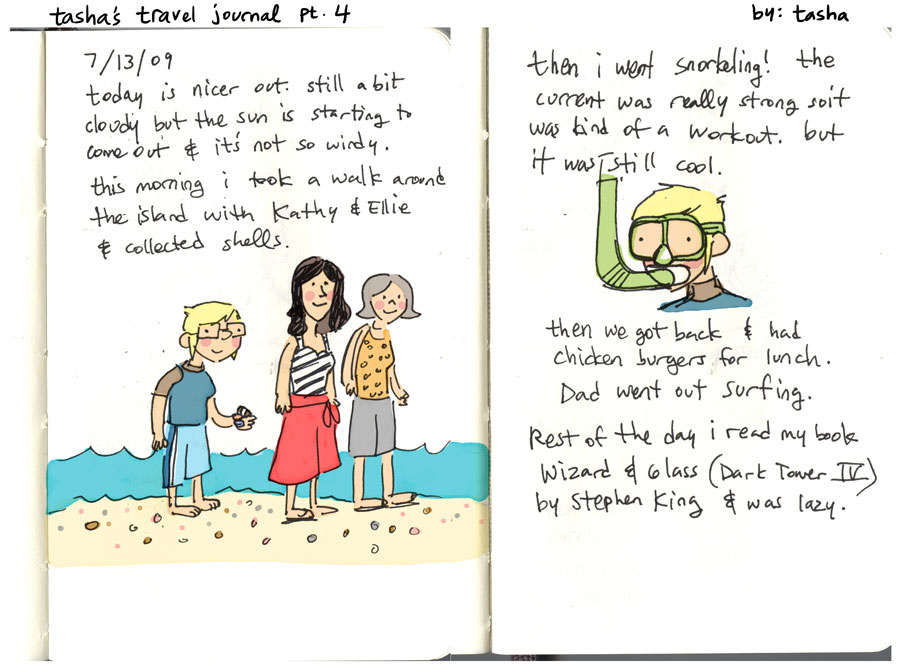 tasha's travel journal pt. 4
by: tasha
7/13/09
today is nicer out. still a bit
cloudy but the sun is starting to
come out & it's not so windy.
this morning i took a walk around
the island with Kathy & Ellie
& collected shells.
then i went snorkeling! the
current was really strong so it
was kind of a workout. but
it was still cool.
then we got back & had
chicken burgers for lunch.
Dad went out surfing.
Rest of the day i read my book
Wizard & Glass (Dark Tower IV)
by Stephen King & was lazy.